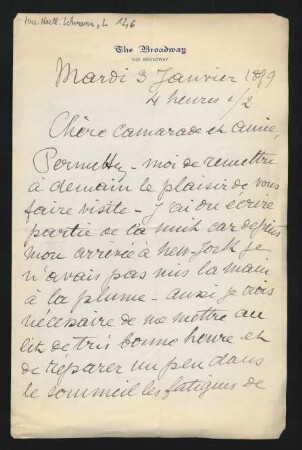 Mus. Nachl. Lehmann, L 12,6
The Broadway
1425 BROADWAY
Mardi 3 Janvier 1899
4 heures 1/2
Chère Camarade et amie,
Permettez-moi de remettre
à demain le plaisir de vous
faire visite - J'ai dû écrire
partie de la nuit car depuis
mon arrivée à New-York je
n'avais pas mis la main
à la plume - aussi je crois
nécessaire de me mettre au
lit de très bonne heure et
de réparer un peu dans
le sommeil les fatigues de